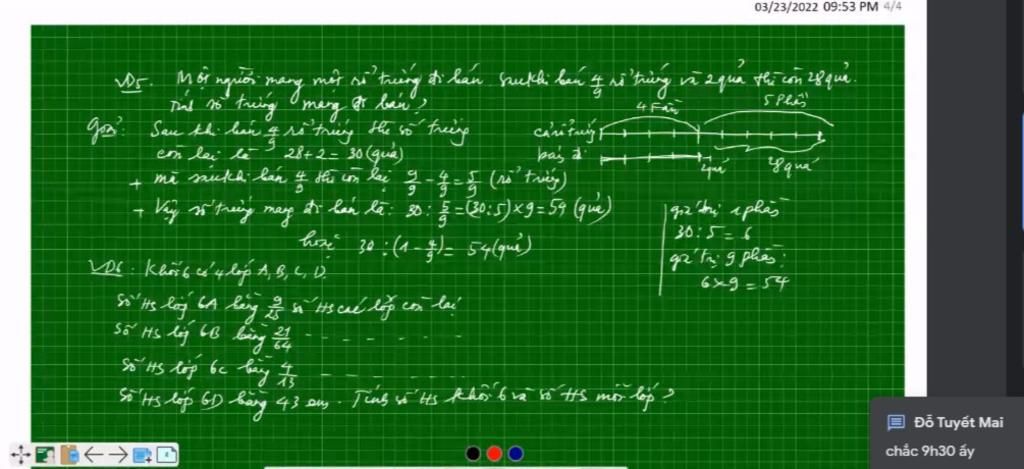 03/23/2022 09:53 PM 4/4
VD5. Một người mang một số trứng đi bán. Sau khi bán 4/9 số trứng và 2 quả thì còn 28 quả.
Tính số trứng mang đi bán?
Giải: Sau khi bán 4/9 số trứng thì số trứng
còn lại là 28 + 2 = 30 (quả)
+ mà sau khi bán 4/9 thì còn lại 9/9 - 4/9 = 5/9 (số trứng)
+ Vậy số trứng mang đi bán là: 30 : 5/9 = (30 : 5) x 9 = 54 (quả)
hoặc 30 : (1 - 4/9) = 54 (quả)
4 phần
5 phần
cả số trứng
bán đi
2 quả
28 quả
giá trị 1 phần
30 : 5 = 6
giá trị 9 phần:
6 x 9 = 54
VD6: Khối 6 có 4 lớp A, B, C, D.
Số HS lớp 6A bằng 9/25 số HS các lớp còn lại
Số HS lớp 6B bằng 21/64 - - - - - -
Số HS lớp 6C bằng 4/13 - - - - - -
Số HS lớp 6D bằng 43 em. Tính số HS khối 6 và số HS mỗi lớp?
Đỗ Tuyết Mai
chắc 9h30 ấy